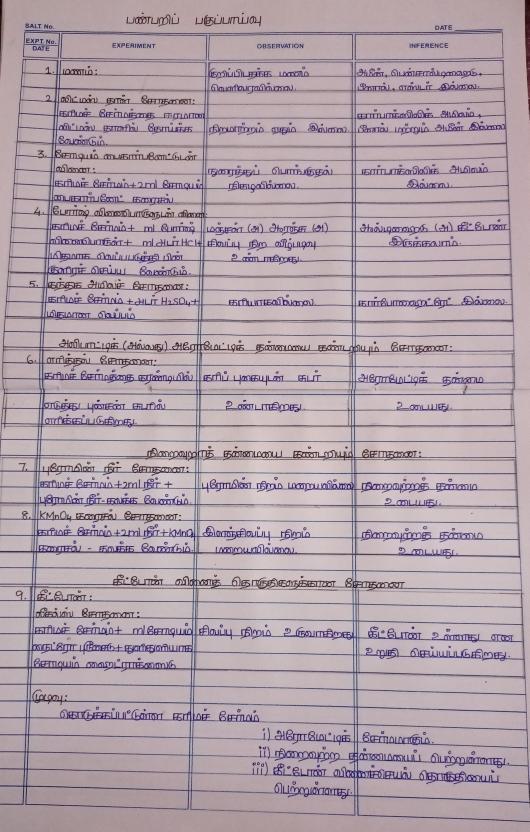 பண்பறிப் பகுப்பாய்வு
SALT No.
DATE
EXPT. No. DATE
EXPERIMENT
OBSERVATION
INFERENCE
1. மணம்:
குறிப்பிடத்தக்க மணம்
வெளிவரவில்லை.
அமீன், பென்சால்டிஹைடு,
பீனால், எஸ்டர் இல்லை.
2. லிட்மஸ் தாள் சோதனை:
கரிமச் சேர்மத்தை ஈரமான
லிட்மஸ் தாளில் தோய்க்க
வேண்டும்.
நிறமாற்றம் ஏதும் இல்லை.
கார்பாக்ஸிலிக் அமிலம்,
பீனால் மற்றும் அமீன் இல்லை
3. சோடியம் பைகார்பனேட்டுடன்
வினை:
கரிமச் சேர்மம்+2ml சோடியம்
பைகார்பனேட் கரைசல்
நுரைத்துப் பொங்குதல்
நிகழவில்லை.
கார்பாக்ஸிலிக் அமிலம்
இல்லை.
4. போர்ஷ் வினைபொருளுடன் வினை:
கரிமச் சேர்மம்+ ml போர்ஷ்
வினைபொருள்+ ml அடர் HCl+
மிதமாக வெப்பபடுத்தி பின்
குளிரச் செய்ய வேண்டும்.
மஞ்சள் (அ) ஆரஞ்சு (அ)
சிவப்பு நிற வீழ்படிவு
உண்டாகிறது.
ஆல்டிஹைடு (அ) கீட்டோன்
இருக்கலாம்.
5. கந்தக அமிலச் சோதனை:
கரிமச் சேர்மம் +அடர் H₂SO₄+
மிதமான வெப்பம்
கரியாகவில்லை.
கார்போஹைட்ரேட் இல்லை.
அலிபாட்டிக் (அல்லது) அரோமேட்டிக் தன்மையை கண்டறியும் சோதனை:
6. எரித்தல் சோதனை:
கரிமச் சேர்மத்தை கரண்டியில்
எடுத்து புன்சன் சுடரில்
எரிக்கப்படுகிறது.
கரிப் புகையுடன் சுடர்
உண்டாகிறது.
அரோமேட்டிக் தன்மை
உடையது.
நிறைவுறாத் தன்மையை கண்டறியும் சோதனை:
7. புரோமின் நீர் சோதனை:
கரிமச் சேர்மம்+2ml நீர் +
புரோமின் நீர்-கலக்க வேண்டும்.
புரோமின் நிறம் மறையவில்லை
நிறைவுற்றத் தன்மை
உடையது.
8. KMnO₄ கரைசல் சோதனை:
கரிமச் சேர்மம்+2ml நீர்+KMnO₄
கரைசல் - கலக்க வேண்டும்.
இளஞ்சிவப்பு நிறம்
மறையவில்லை.
நிறைவுற்றத் தன்மை
உடையது.
கீட்டோன் வினைத் தொகுதிகளுக்கான சோதனை
9. கீட்டோன்:
லீகல்ஸ் சோதனை:
கரிமச் சேர்மம்+ ml சோடியம்
நைட்ரோ புரூசைடு+துளிதுளியாக
சோடியம் ஹைட்ராக்ஸைடு
சிவப்பு நிறம் உருவாகிறது
கீட்டோன் உள்ளது என
உறுதி செய்யப்படுகிறது.
முடிவு:
கொடுக்கப்பட்டுள்ள கரிமச் சேர்மம்
i) அரோமேட்டிக் சேர்மமாகும்.
ii) நிறைவுற்ற தன்மையைப் பெற்றுள்ளது.
iii) கீட்டோன் வினைச்செயல் தொகுதியைப்
பெற்றுள்ளது.